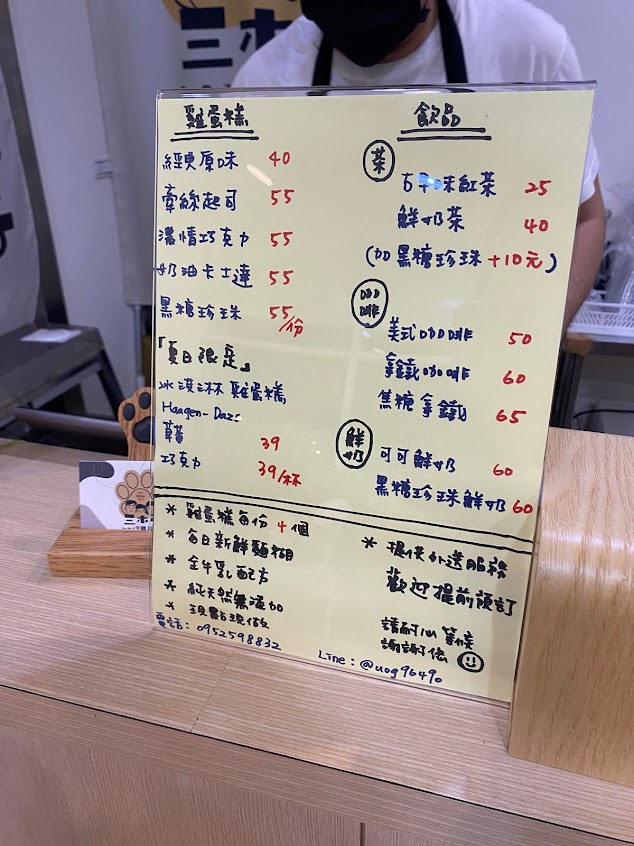 三木
雞蛋糕
經典原味 40
牽絲起司 55
濃情巧克力 55
奶油卡士達 55
黑糖珍珠 55/份
『夏日限定』
冰淇淋雞蛋糕
Haagen-Dazs
草莓 39
巧克力 39/杯
飲品
茶
古早味紅茶 25
鮮奶茶 40
(加黑糖珍珠+10元)
咖啡
美式咖啡 50
拿鐵咖啡 60
焦糖拿鐵 65
鮮奶
可可鮮奶 60
黑糖珍珠鮮奶 60
* 雞蛋糕每份4個
* 每日新鮮麵糊
* 全牛乳配方
* 純天然無添加
* 現點現做
電話: 0952598832
* 提供外送服務
歡迎提前預訂
請耐心等候
謝謝您
Line: @uog9649o